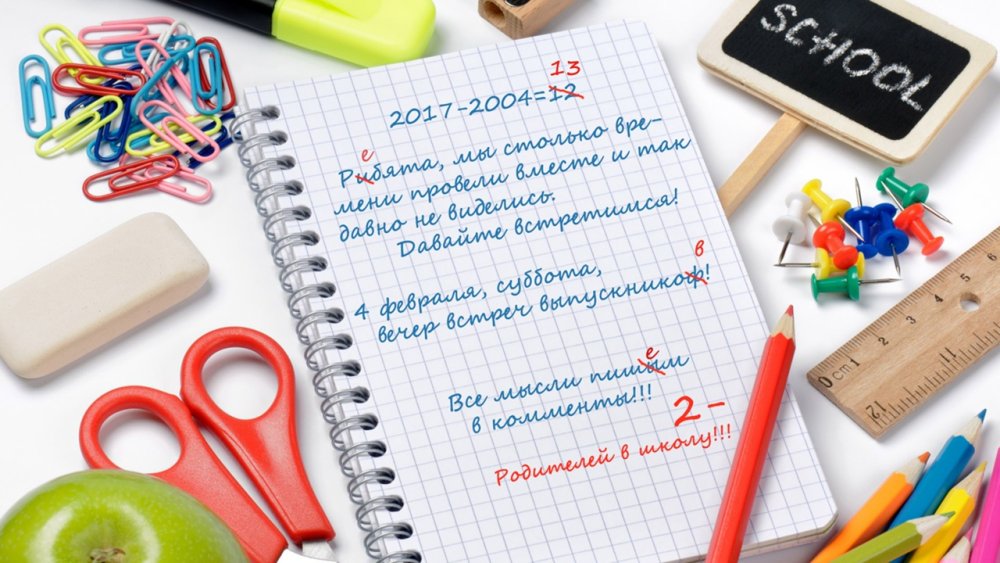 SCHOOL
13
2017-2004=12
е
Рибята, мы столько вре-
мени провели вместе и так
давно не виделись.
Давайте встретимся!
4 февраля, суббота,
в
вечер встреч выпускникоф!
е
Все мысли пишым
в комменты!!!
2-
Родителей в школу!!!
0 cm 1 2 3 4 5 6
12 11